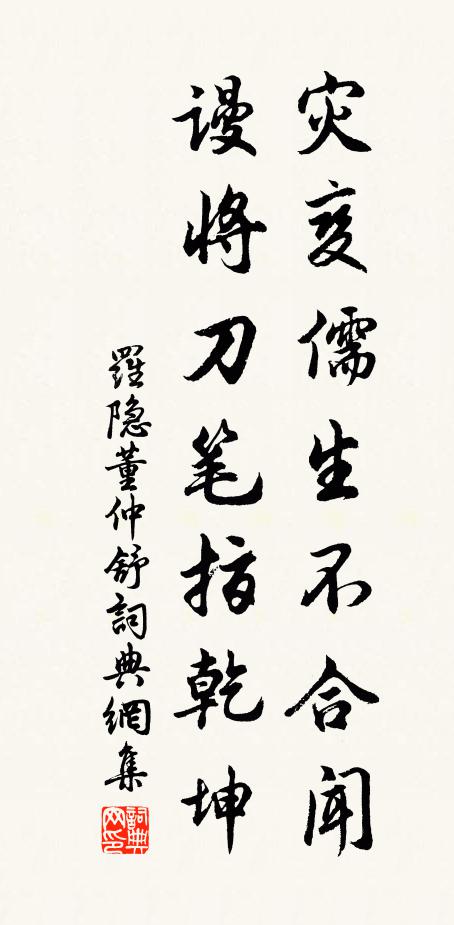 灾变儒生不合闻
谩将刀笔指乾坤
羅隐董仲舒詞典網集
詞典网印